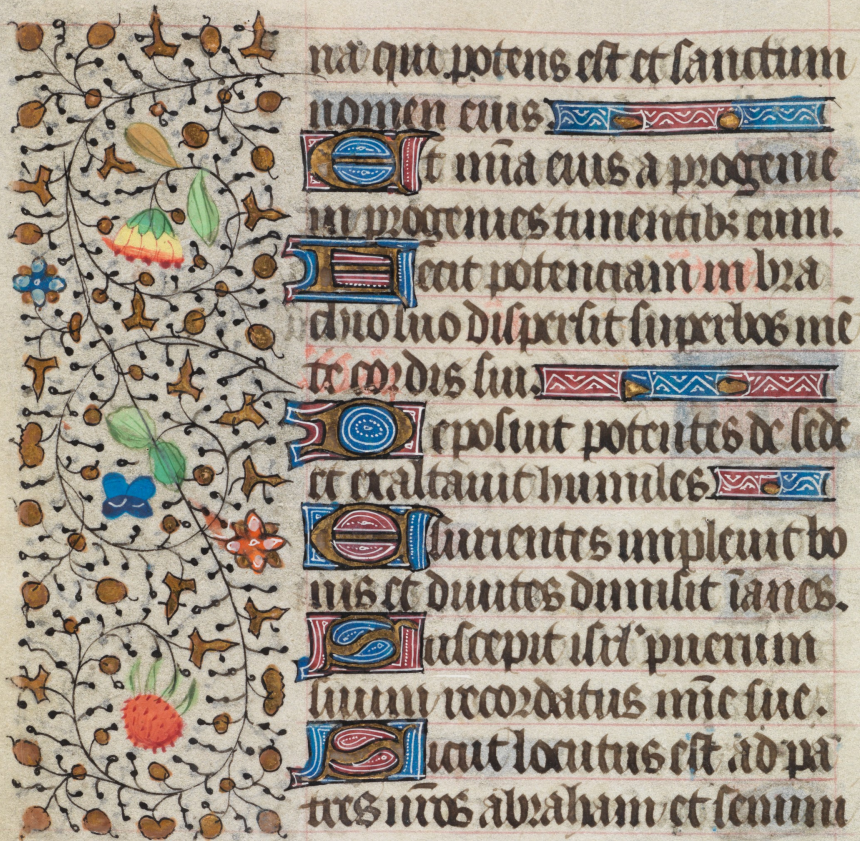 na qui potens est et sanctum
nomen eius
Et mīa eius a progenie
in progenies timentibꝫ eum.
Fecit potenciam in bra
chio suo dispersit superbos mē
te cordis sui.
Deposuit potentes de sede
et exaltauit humiles
Esurientes impleuit bo
nis et diuites dimisit īanes.
Suscepit isrl' puerum
suum recordatus mīe sue.
Sicut locutus est ad pa
tres nr̄os abraham et semini